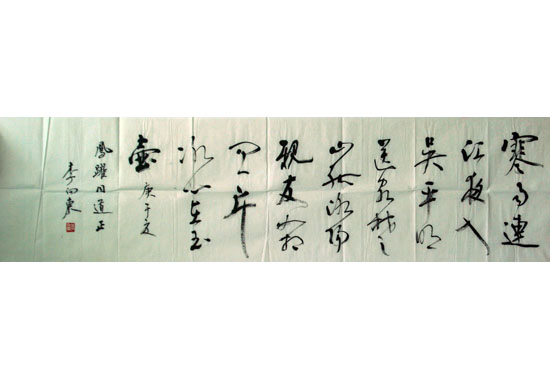 寒雨連
江夜入
吴平明
送客楚
山孤洛陽
親友如相
问一片
冰心在玉
壺 庚子夏
鳳躍同道正
李向東